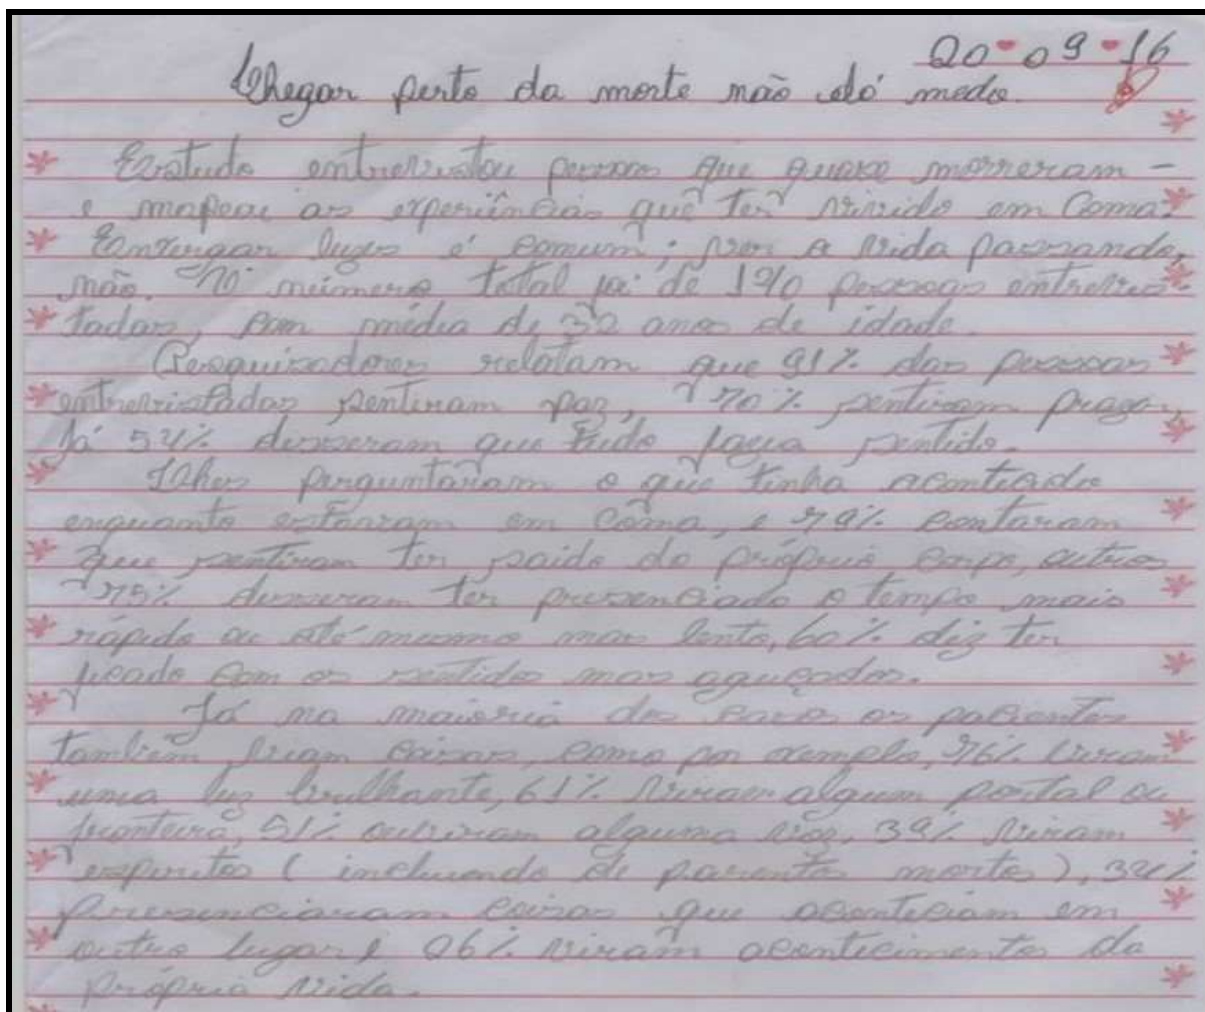 20-09-16
Chegar perto da morte não dó medo.
Estudo entrevistou pessoas que quase morreram -
e mapeou as experiências que ter vivido em Coma.
Enxergar luzes é comum; ver a vida passando,
não. No número total foi de 190 pessoas entrevis-
tadas, com média de 32 anos de idade.
Pesquisadores relatam que 91% das pessoas
entrevistadas sentiram paz, 70% sentiram
Já 54% disseram que tudo sentido.
Lhes perguntaram o que tinha
enquanto estavam em coma, e 79% contaram
que sentiram ter saido do próprio corpo, outros
75% disseram ter presenciado o tempo mais
rápido ou até mesmo mas lento, 60% diz ter
ficado com os sentido mas aguçados.
Já na maioria dos casos os pacientes
também coisas, como por exemplo, 76% viram
uma luz brilhante, 61% viram algum portal ou
fronteira, 51% ouviram alguma voz, 39% viram
espiritos (incluendo de parentes mortos), 34%
presenciaram coisas que aconteciam em
outro lugar e 06% viram acontecimentos da
própria vida.